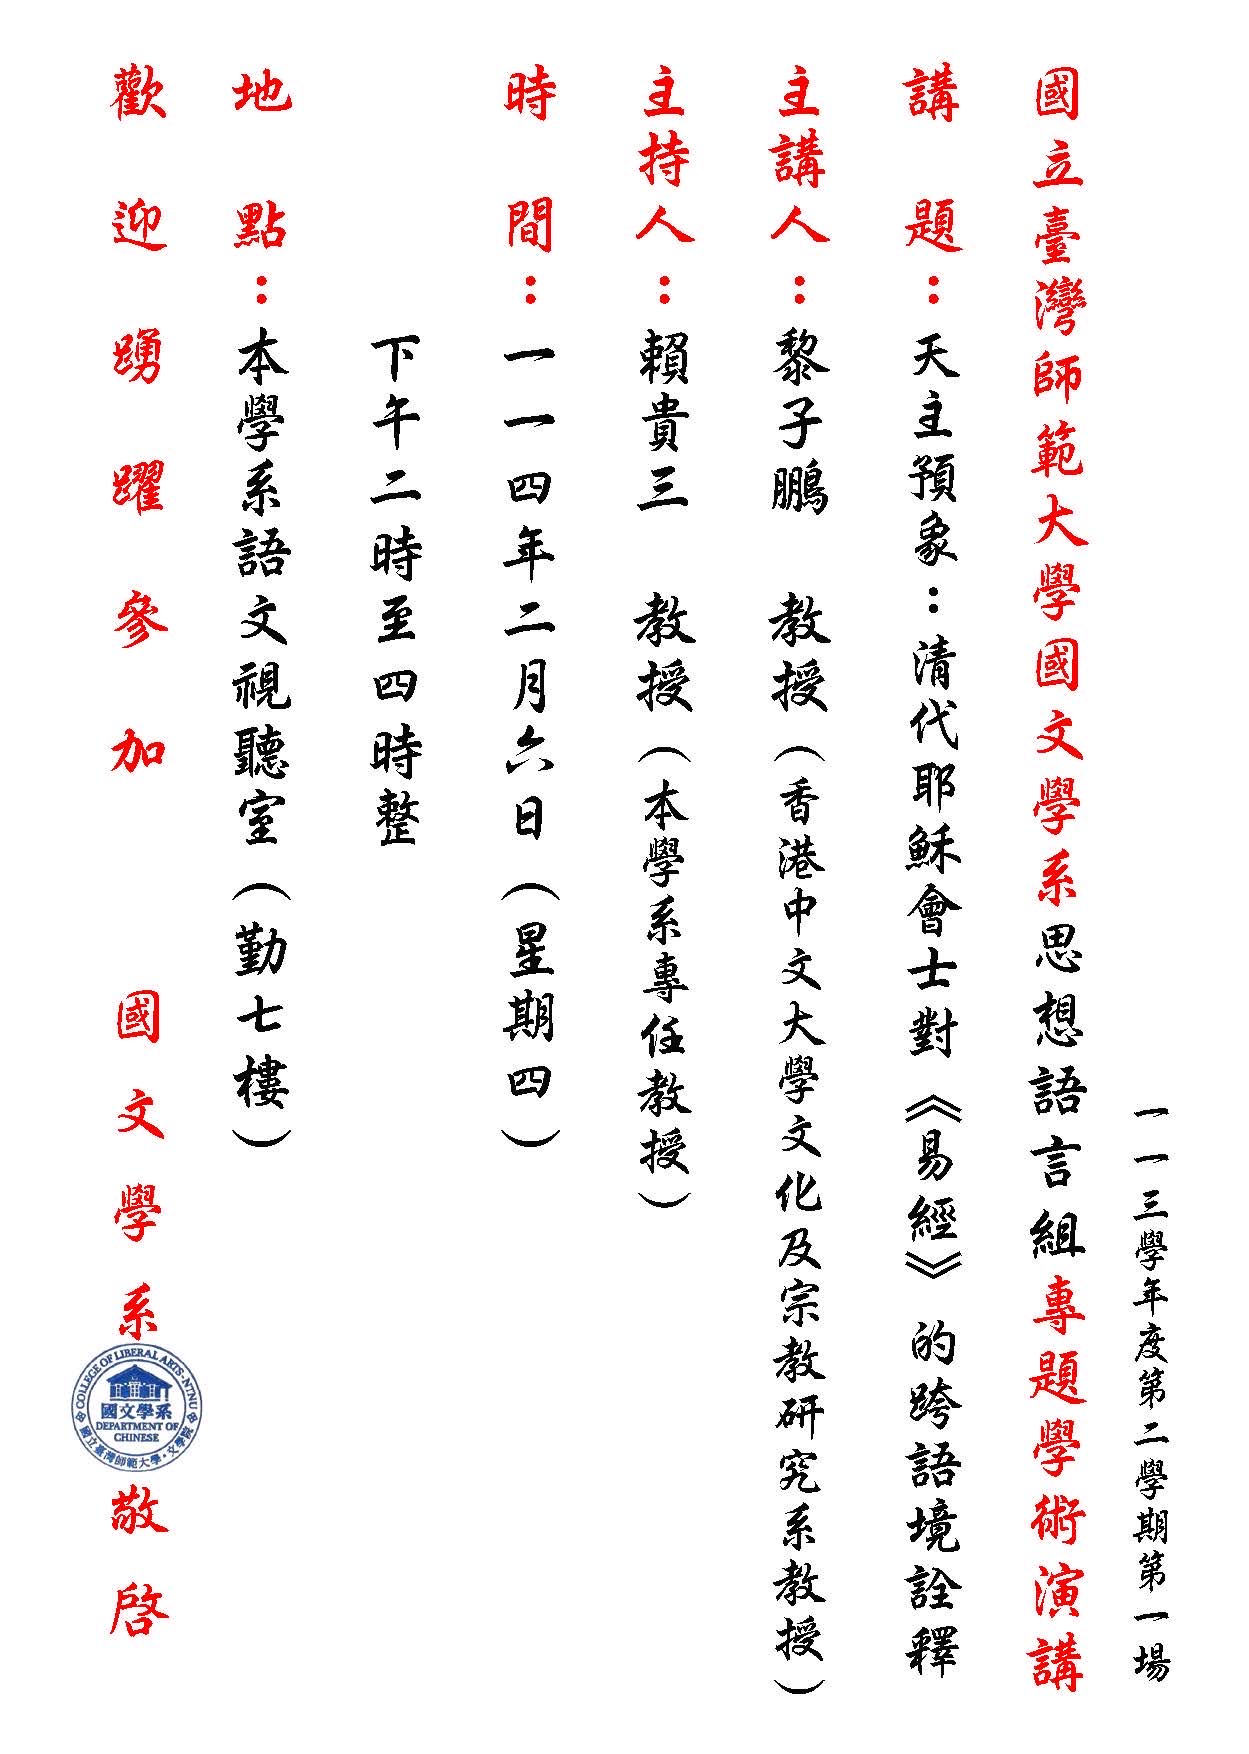 一一三學年度第二學期第一場
國立臺灣師範大學國文學系思想語言組專題學術演講
講題：天主預象：清代耶穌會士對《易經》的跨語境詮釋
主講人：黎子鵬 教授（香港中文大學文化及宗教研究系教授）
主持人：賴貴三 教授（本學系專任教授）
時間：一一四年二月六日（星期四）
下午二時至四時整
地點：本學系語文視聽室（勤七樓）
歡迎踴躍參加 國文學系敬啓
COLLEGE OF LIBERAL ARTS·NTNU
國文學系
DEPARTMENT OF
CHINESE
國立臺灣師範大學·文學院